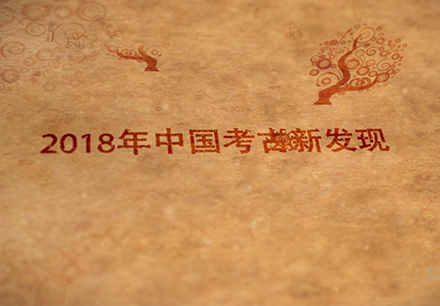 2018年中国考古新发现